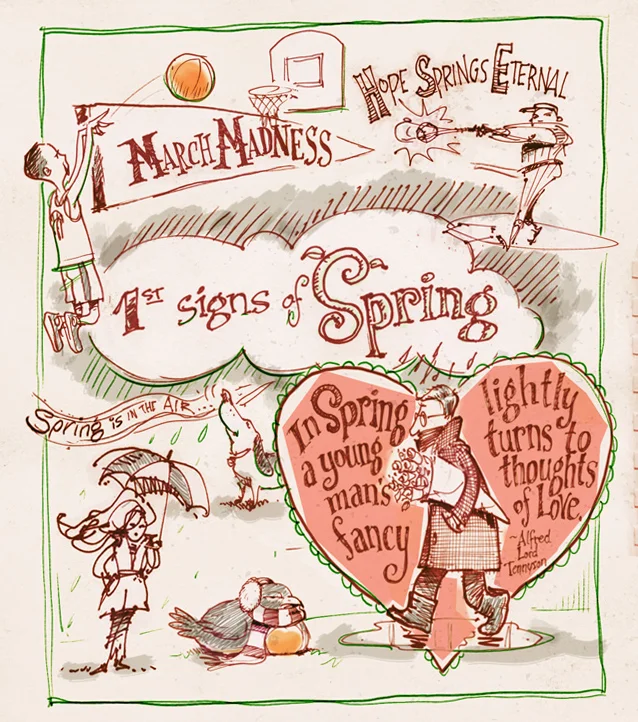 Hope Springs Eternal
March Madness
1st signs of Spring
Spring is in the air...!!
In Spring
a young
man's
fancy
lightly
turns to
thoughts
of Love.
~Alfred
Lord
Tennyson